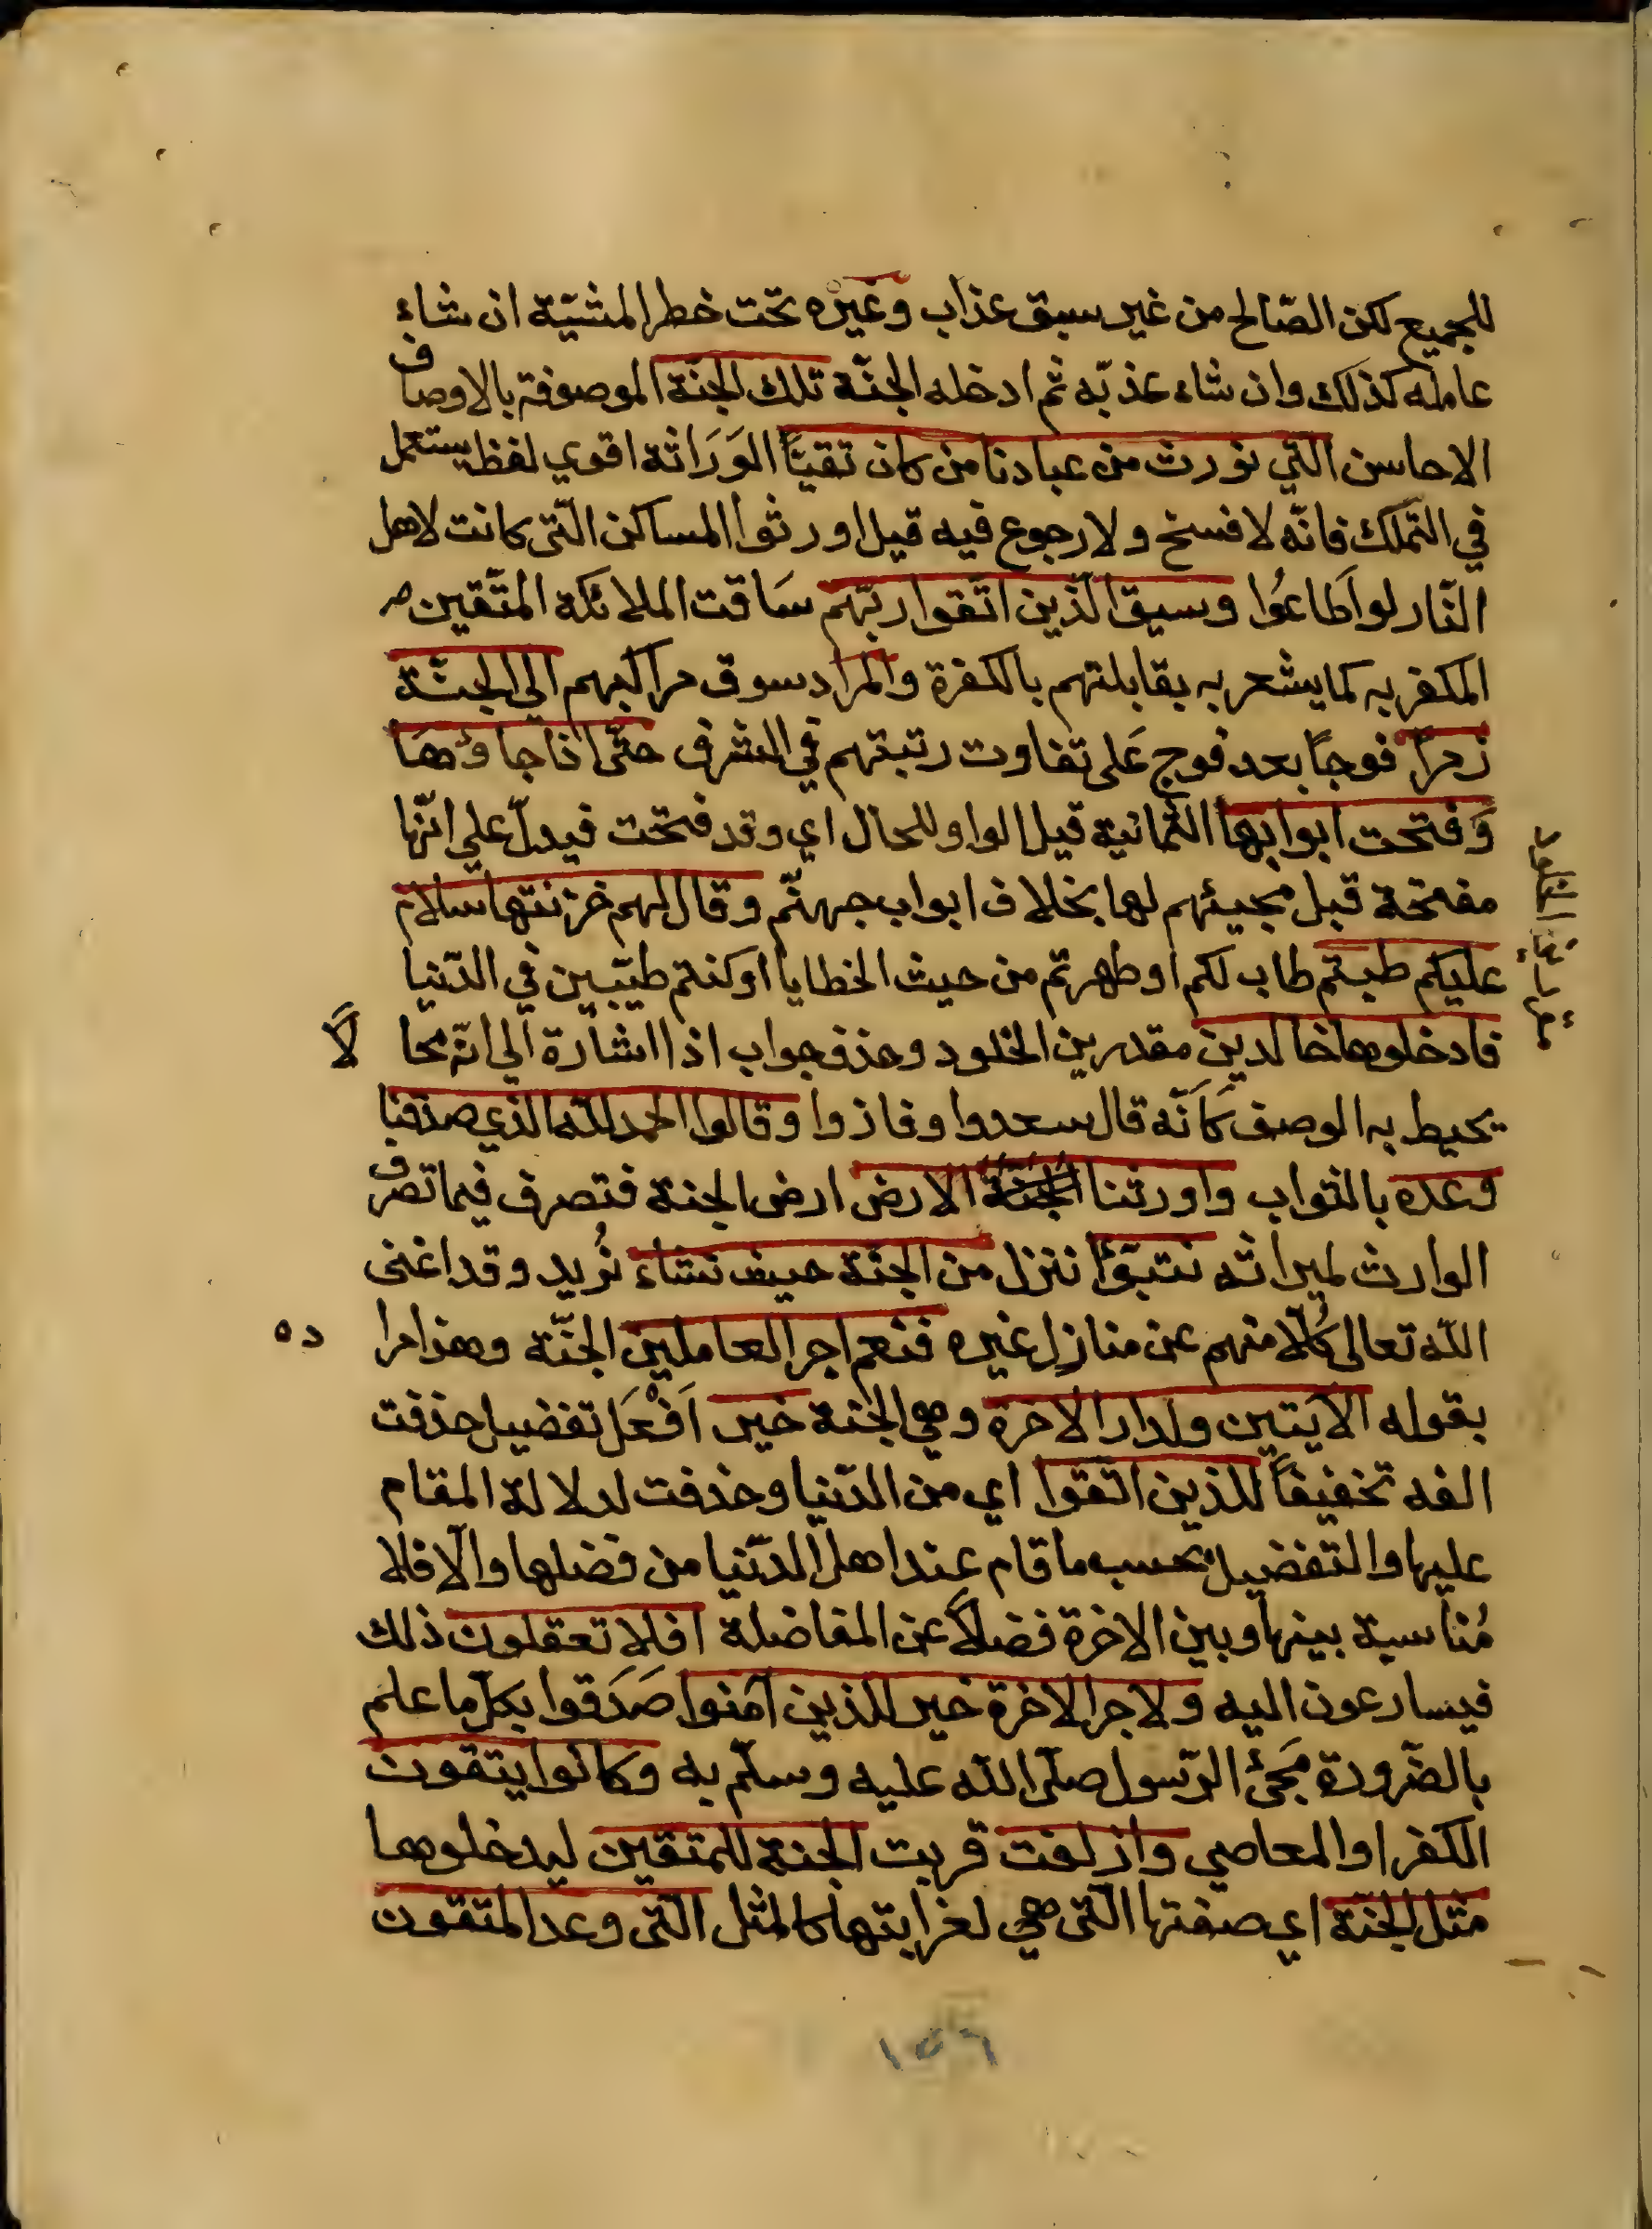 للجميع لكن الصّالح من غير سبق عذاب وغيره تحت خطر المشيّة ان شاء
عامله كذلك وان شاء عذبّه ثم ادخله الجنّة تلك الجنّة الموصوفة بالاوصاف
الاحاسن التي نورث من عبادنا من كان تقيّاً الوَرَاثة اقوي لفظ يستعمل
في التملّك فانّه لا فسخ ولا رجوع فيه قيل اورثوا المساكن الّتي كانت لاهل
النّار لو اَطَاعُوا وسيق الّذين اتّقوا ربّهم سَاقت الملائكة المتّقين
المكفر به كما يشعر به بقابلتهم بالكفرة والمراد سوق مراكبهم الي الجنّة
زمراً فوجاً بعد فوج عَلى تفاوت رتبتهم في الشرف حتّى اذا جاؤهَا
وَفتحت ابوابها الثمانية قيل الواو للحال اي وقد فتحت فيدلّ علي انّها
مفتحة قبل مجيئهم لها بخلاف ابواب جهنّم وقال لهم خزنتها سلام
عليكم طبتم طاب لكم او طهرتم من حيث الخطايا او كنتم طيّبين في الدّنيا
فادخلوها خالدين مقدرين الخلود وحذف جواب اذا اشارة الي انّه مما لا
يحيط به الوصف كَأنّه قال سعدوا وفازوا وقالوا الحمد لله الذي صدقنا
وعده بالثواب واورثنا الارض ارض الجنة فتصرف فيما تصرف
الوارث لميراثه نتبوّأ ننزل من الجنّة حيث نشاء نُريد وقد اغنى
الله تعالى كُلّا منهم عن منازل غيره فنعم اجر العاملين الجنّة وهذا مراده
بقوله الآيتين ولدار الاخرة وهي الجنة خير اَفْعَل تفضيل حذفت
الفه تخفيفاً للذين اتّقوا اي من الدّنيا وحذفت لدلالة المقام
عليها والتفضيل بحسب ما قام عند اهل الدّنيا من فضلها والّا فلا
مُناسبة بينها وبين الاخرة فضلاً عن المفاضلة افلا تعقلون ذلك
فيسارعون اليه ولاجر الاخرة خير للذين آمنوا صَدَقوا بكلّ ما علم
بالضّرورة مَجئ الرّسول صلّى الله عليه وسلّم به وكانوا يتقون
الكفر او المعاصي وازلفت قربت الجنة للمتقين ليدخلوها
مثل الجنّة اي صفتها الّتي هي لغرابتها كالمثل الّتي وعد المتقون
١٥٦